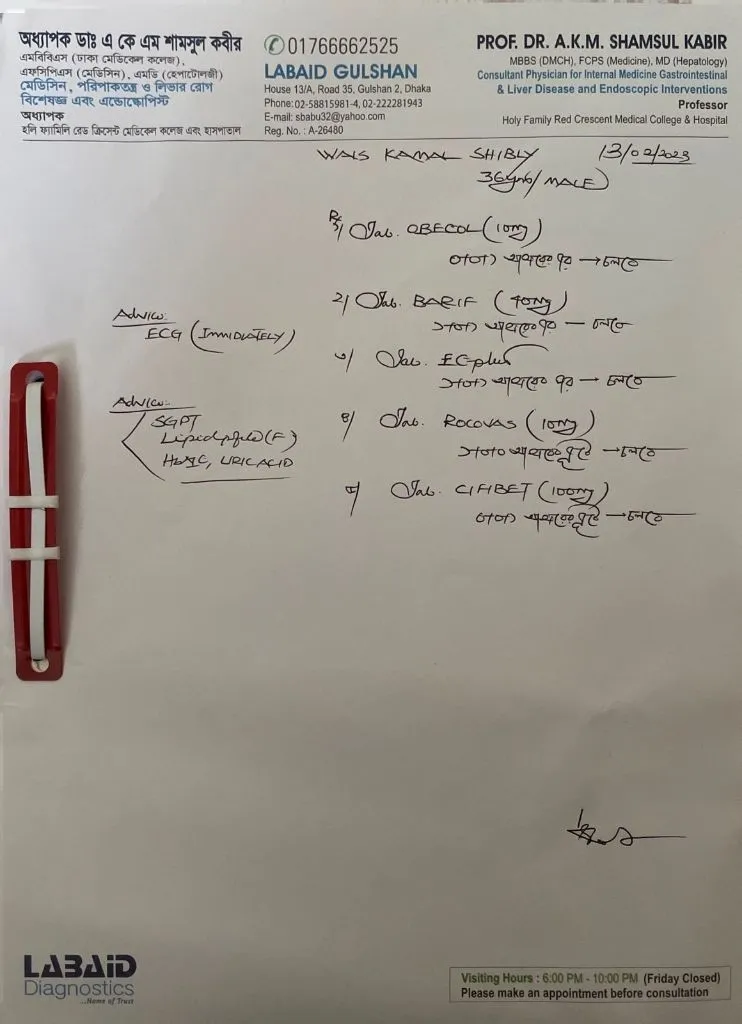 অধ্যাপক ডাঃ এ কে এম শামসুল কবীর
এমবিবিএস (ঢাকা মেডিকেল কলেজ),
এফসিপিএস (মেডিসিন), এমডি (হেপাটোলজী)
মেডিসিন, পরিপাকতন্ত্র ও লিভার রোগ
বিশেষজ্ঞ এবং এন্ডোস্কোপিস্ট
অধ্যাপক
হলি ফ্যামিলি রেড ক্রিসেন্ট মেডিকেল কলেজ এবং হাসপাতাল
01766662525
LABAID GULSHAN
House 13/A, Road 35, Gulshan 2, Dhaka
Phone: 02-58815981-4, 02-222281943
E-mail: sbabu32@yahoo.com
Reg. No. : A-26480
PROF. DR. A.K.M. SHAMSUL KABIR
MBBS (DMCH), FCPS (Medicine), MD (Hepatology)
Consultant Physician for Internal Medicine Gastrointestinal
& Liver Disease and Endoscopic Interventions
Professor
Holy Family Red Crescent Medical College & Hospital
WAIS KAMAL SHIBLY 13/02/2023
36yrs/MALE)
Advice:
ECG (IMMIDIATELY)
Advice:
SGPT
Lipid profile (F)
HbA1C, URIC ACID
Rx
১/ Tab. OBECOL (10mg)
আহারের পর → চলবে
২/ Tab. BARIF (40mg)
আহারের পর — চলবে
৩/ Tab. ECplus
আহারের পর → চলবে
৪/ Tab. ROCOVAS (10mg)
আহারের পূর্বে → চলবে
৫/ Tab. CIFIBET (100mg)
আহারের পূর্বে → চলবে
LABAID
Diagnostics
...Name of Trust
Visiting Hours : 6:00 PM - 10:00 PM (Friday Closed)
Please make an appointment before consultation